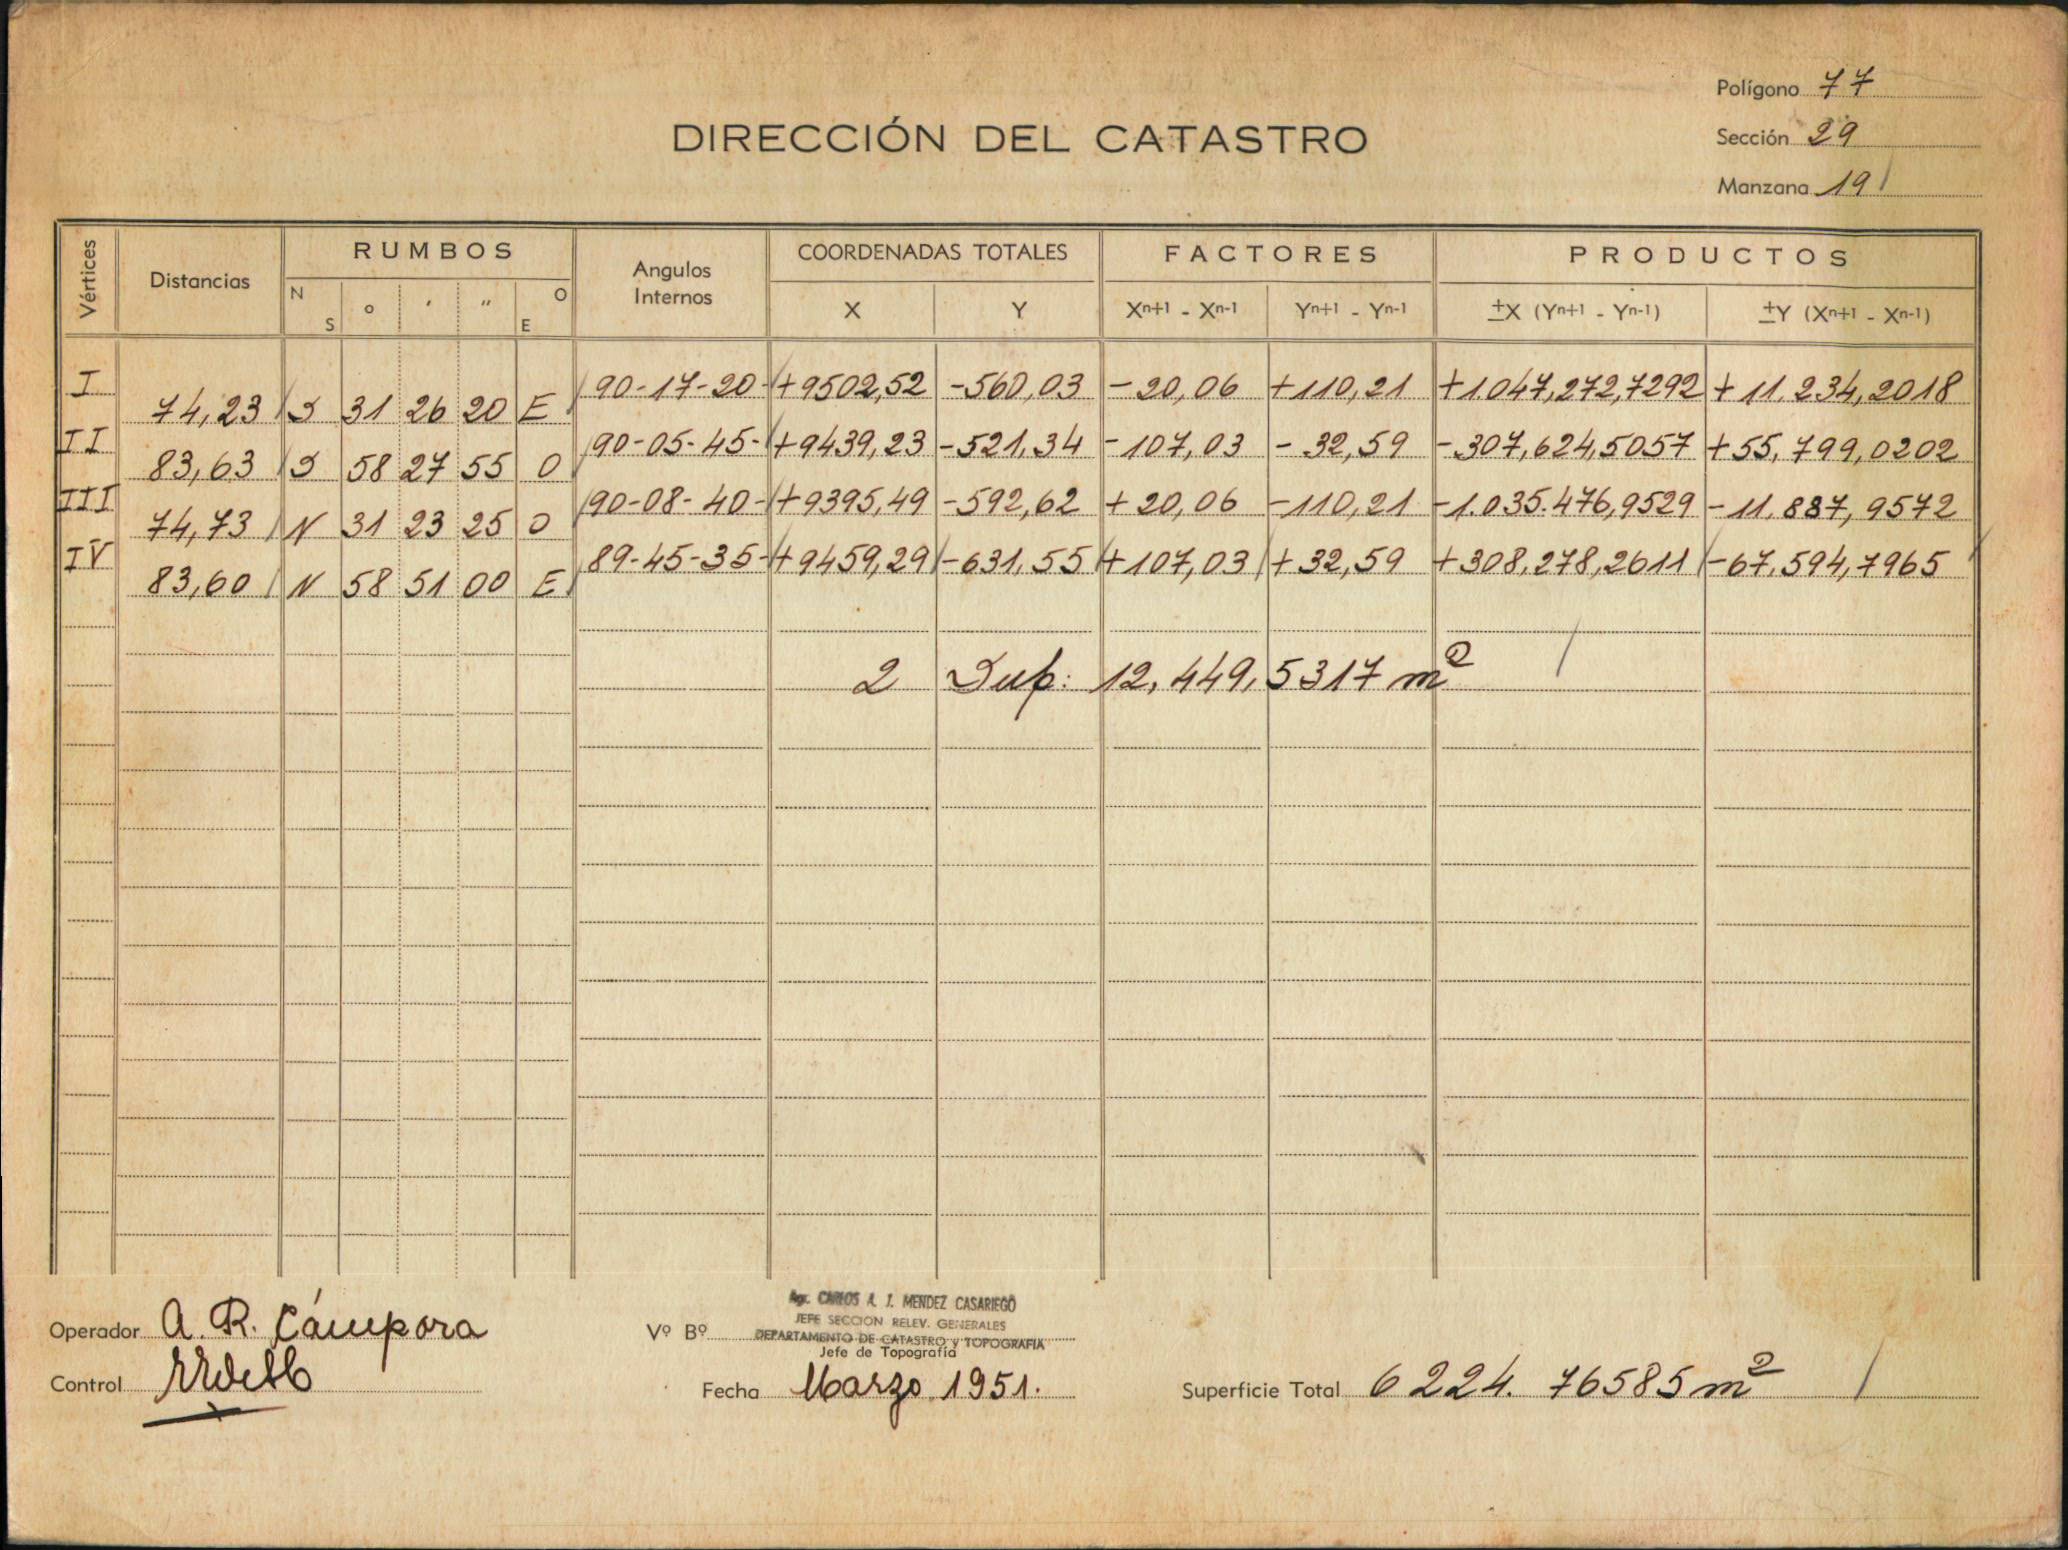 Polígono 77
DIRECCIÓN DEL CATASTRO
Sección 29
Manzana 19
Vértices Distancias RUMBOS Angulos Internos COORDENADAS TOTALES FACTORES PRODUCTOS
N S ° ' " E O X Y Xn+1 - Xn-1 Yn+1 - Yn-1 ±X (Yn+1 - Yn-1) ±Y (Xn+1 - Xn-1)
I 90-17-20- +9502,52 -560,03 -20,06 +110,21 +1.047,272,7292 +11.234,2018
74,23 S 31 26 20 E
II 90-05-45- +9439,23 -521,34 -107,03 -32,59 -307,624,5057 +55,799,0202
83,63 S 58 27 55 O
III 90-08-40- +9395,49 -592,62 +20,06 -110,21 -1.035.476,9529 -11,887,9572
74,73 N 31 23 25 O
IV 89-45-35- +9459,29 -631,55 +107,03 +32,59 +308,278,2611 -67.594,7965
83,60 N 58 51 00 E
2 Sup: 12,449,5317 m²
Operador A. R. Cámpora
Vº Bº
Agr. CARLOS A. J. MENDEZ CASARIEGO
JEFE SECCION RELEV. GENERALES
DEPARTAMENTO DE CATASTRO y TOPOGRAFIA
Jefe de Topografía
Control
Fecha Marzo 1951.
Superficie Total 6224.76585 m²